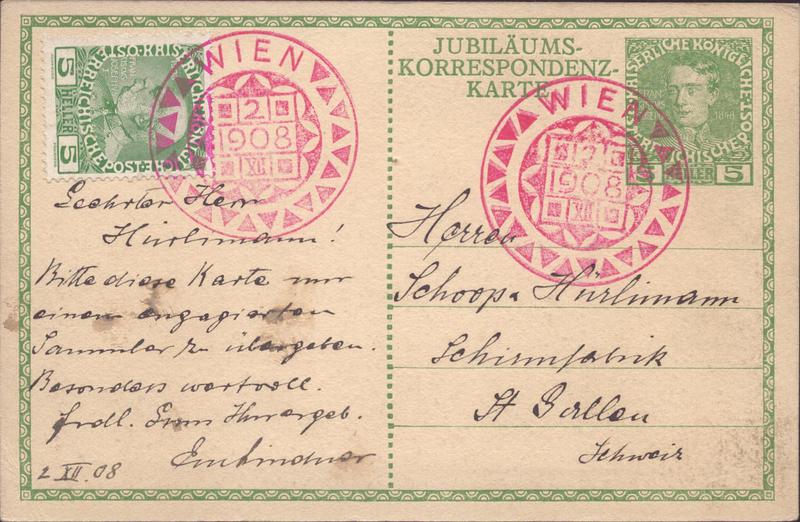 JUBILÄUMS-
KORRESPONDENZ-
KARTE
WIEN
2
1908
XII
WIEN
2
1908
XII
5
HELLER
5
5
HELLER
5
1848
Herrn
Hürlimann!
Bitte diese Karte nur
einem engagierten
Sammler zu übergeben.
Besonders wertvoll.
frdl. Gruss Ihr ergeb.
2 XII. 08
Herren
Schoop & Hürlimann
Schirmfabrik
St Gallen
Schweiz